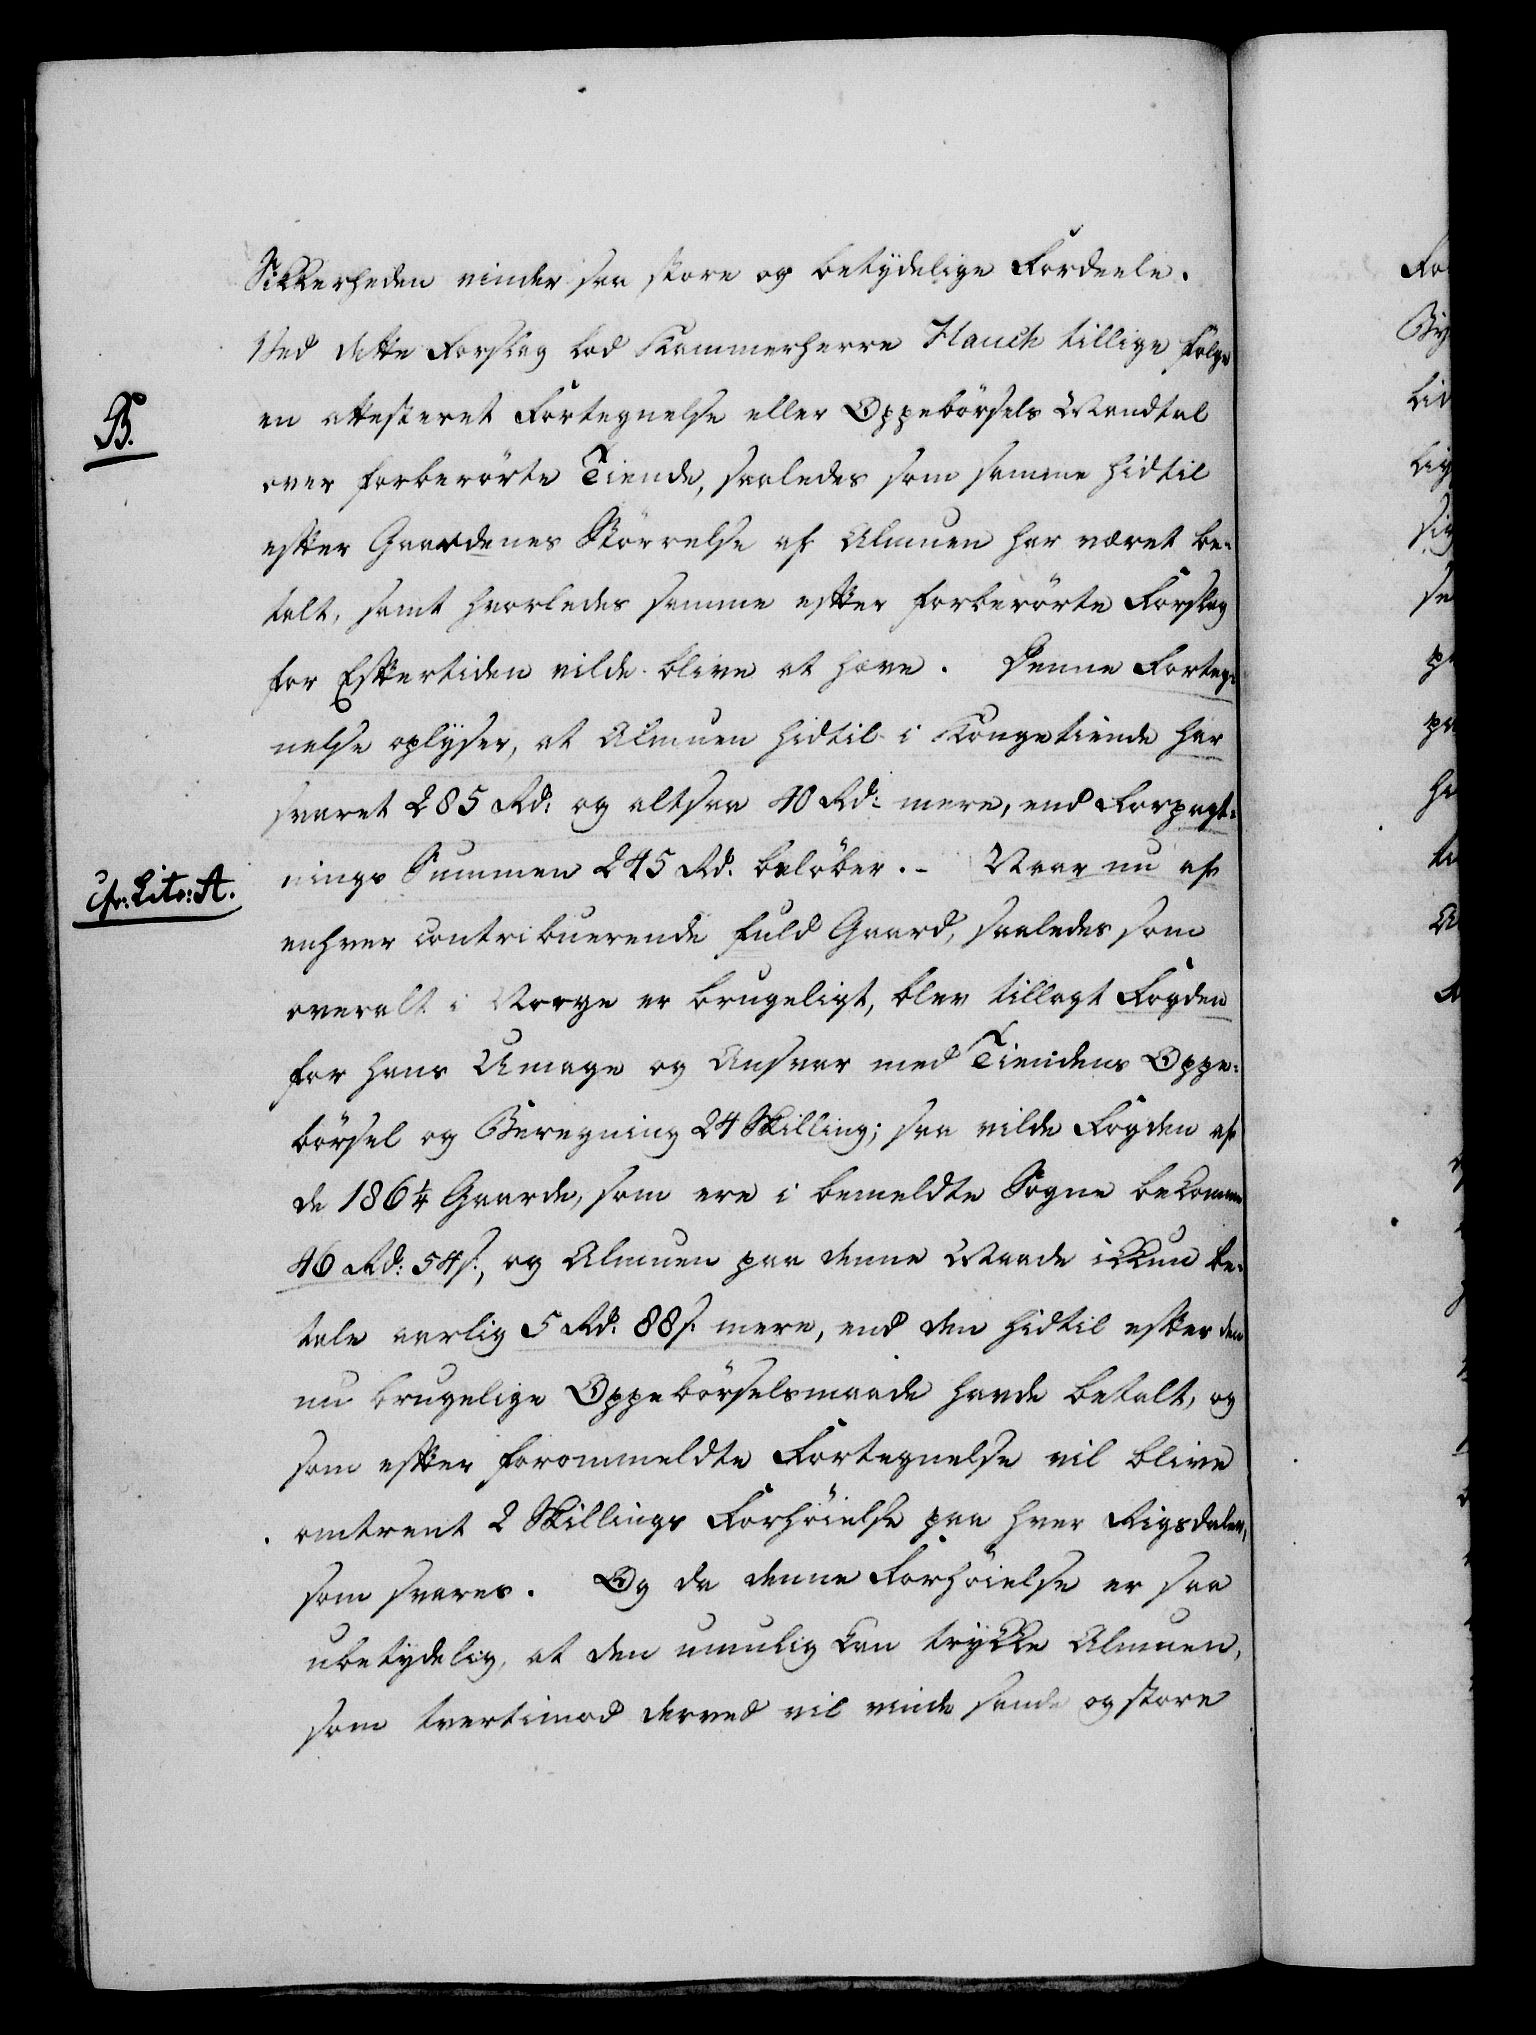 Sikkerheden vinder saa store og betydelige Fordeele.
Ved dette Forslag lod Kammerherre Hauch tillige følge
B.
en attesteret Fortegnelse eller Oppebörsels Mandtal
over forberörte Tiende, saaledes som samme hidtil
efter Gaardenes Störrelse af Almuen har været be-
talt, samt hvorledes samme efter forberörte Forslag
for Eftertiden vilde blive at hæve. Denne Forteg-
nelse oplyser, at Almuen hidtil i Kongetiende har
svaret 285 Rd: og altsaa 40 Rd: mere, end Forpagt-
nings Summen 245 Rd. belöber. - Naar nu af
cfr: Litr: A.
enhver contribuerende fuld Gaard, saaledes som
overalt i Norge er brugeligt, blev tillagt Fogden
for hans Umage og Ansvar med Tiendens Oppe-
börsel og Beregning 24 Skilling; saa vilde Fogden af
de 186 1/4 Gaarde, som ere i bemeldte Sogne bekomme
46 Rd: 54 s., og Almuen paa denne Maade ikkun be-
tale aarlig 5 Rd. 88 s. mere, end den hidtil efter den
nu brugelige Oppebörselsmaade havde betalt, og
som efter forommeldte Fortegnelse vil blive
omtrent 2 Skillings Forhöielse paa hver Rigsdaler,
som svares. Og da denne Forhöielse er saa
ubetydelig, at den umulig kan trykke Almuen,
som tvertimod derved vil vinde sande og store